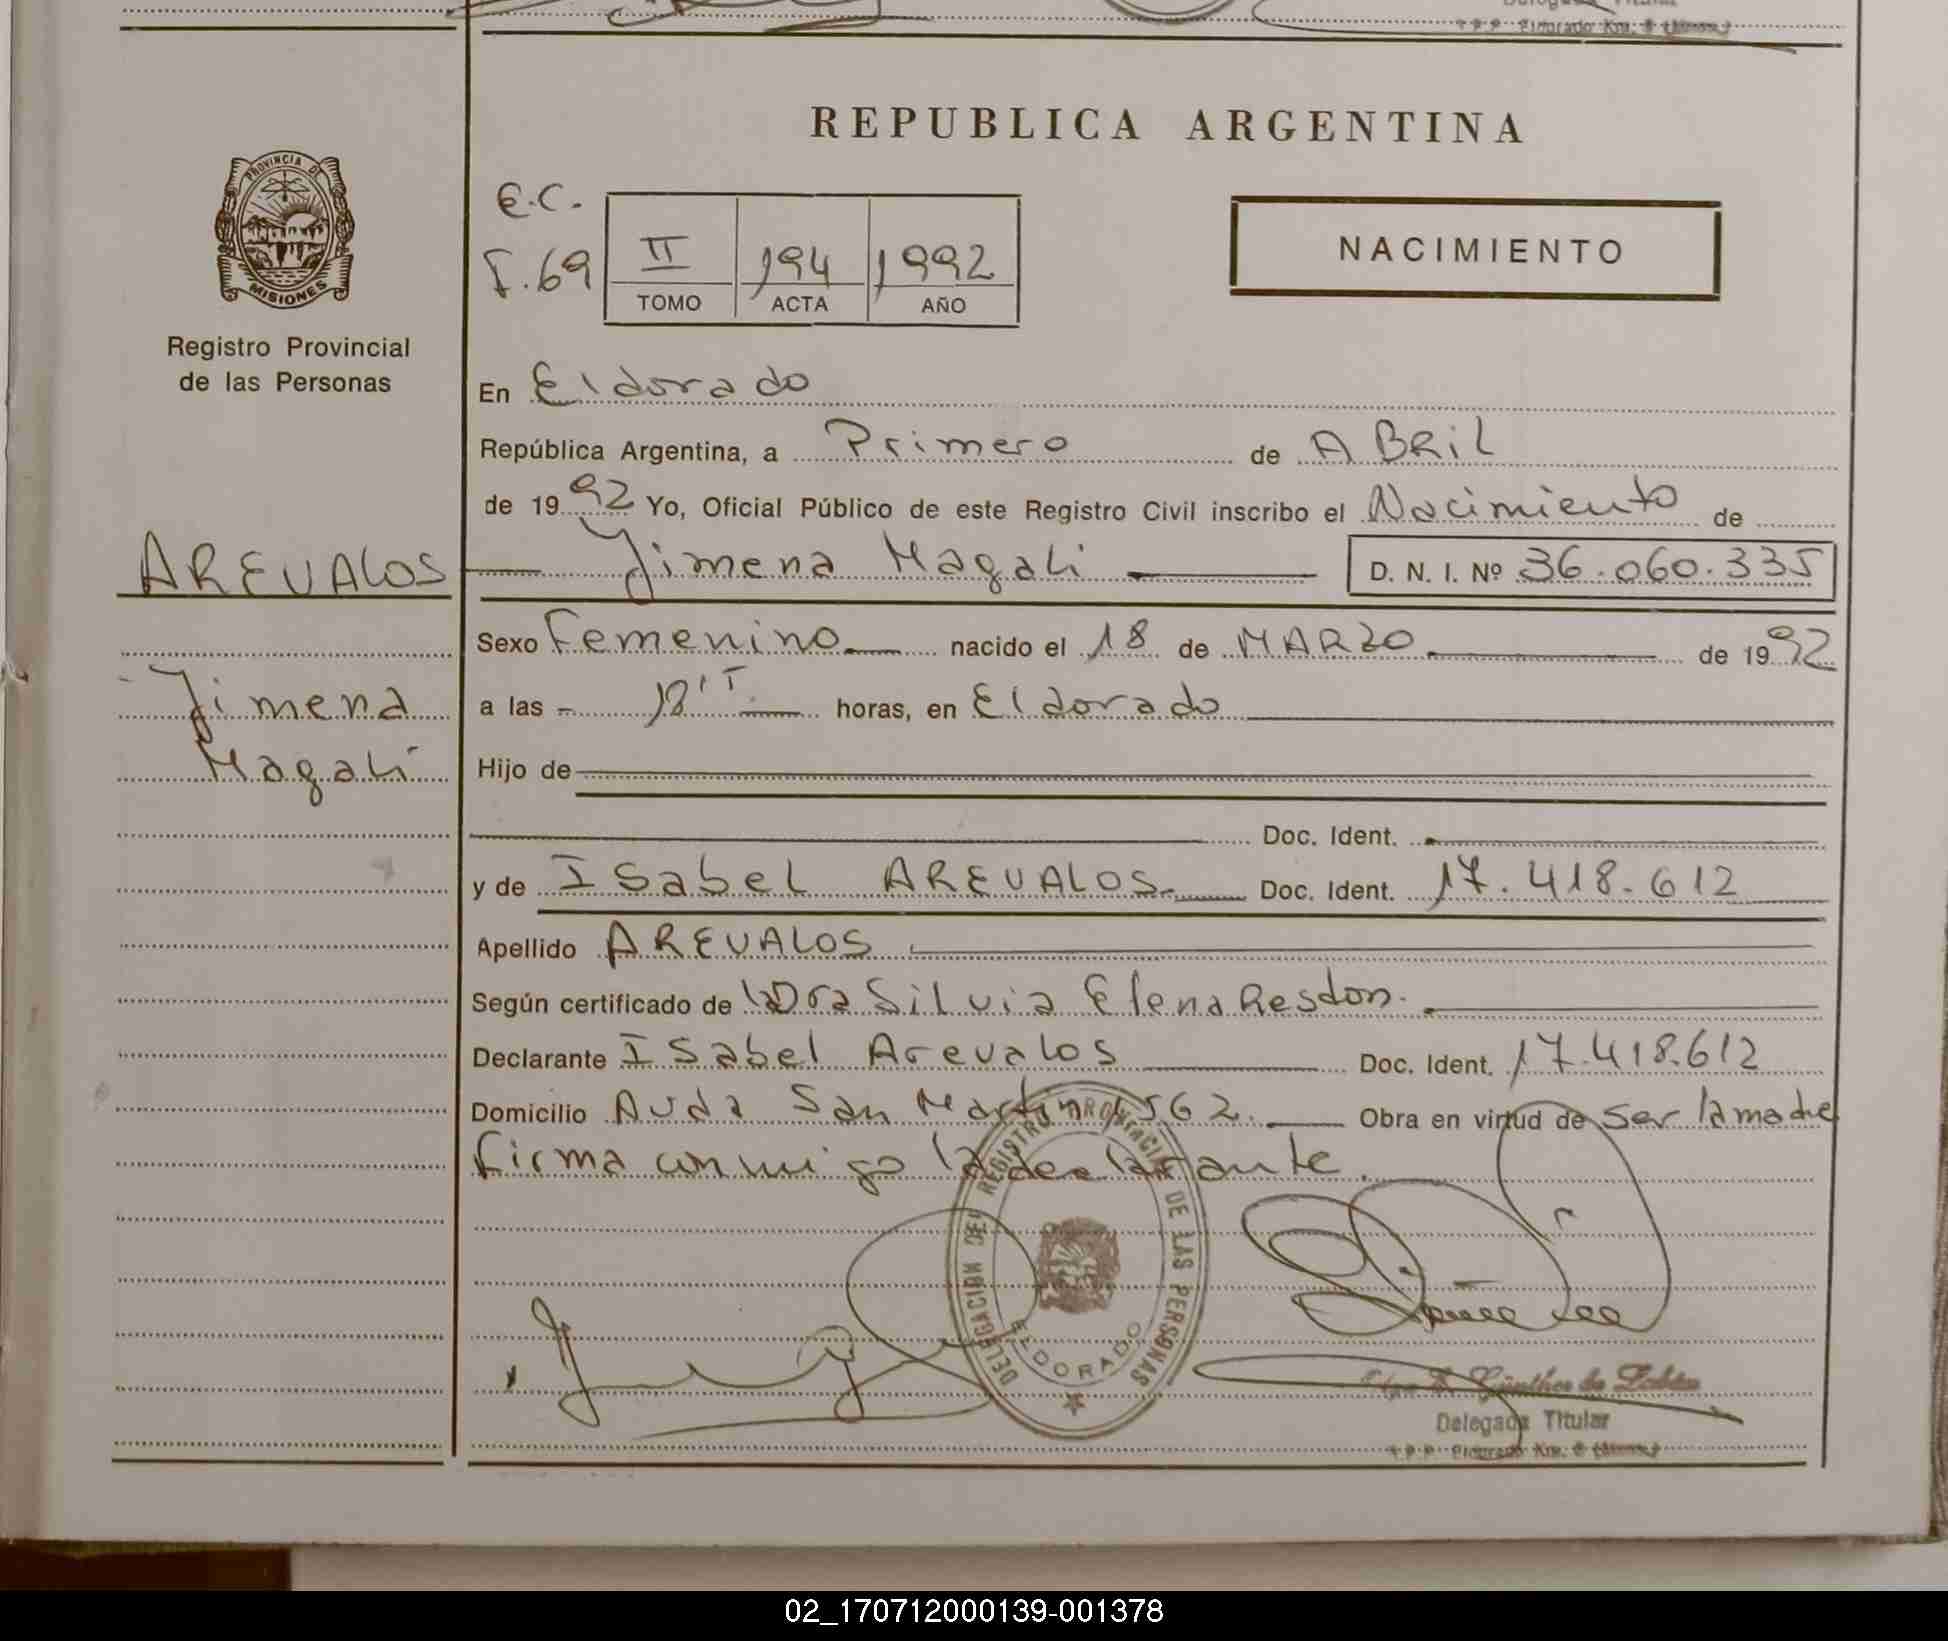 REPUBLICA ARGENTINA
PROVINCIA DE
MISIONES
Registro Provincial
de las Personas
E.C.
F.69
II 194 1992
TOMO ACTA AÑO
NACIMIENTO
En Eldorado
República Argentina, a Primero de ABRIL
de 1992 Yo, Oficial Público de este Registro Civil inscribo el Nacimiento de
AREVALOS
Jimena Magali D. N. I. Nº 36.060.335
Sexo Femenino nacido el 18 de MARZO de 1992
Jimena
a las horas, en Eldorado
Magali
Hijo de
Doc. Ident.
y de Isabel AREVALOS. Doc. Ident. 17.418.612
Apellido AREVALOS
Según certificado de la Dra Silvia Elena Resdon.
Declarante Isabel Arevalos Doc. Ident. 17.418.612
Domicilio Avda San Martin 1562. Obra en virtud de ser la madre
firma conmigo la declarante.
REGISTRO PROVINCIAL DE LAS PERSONAS
DELEGACION
ELDORADO
Günther de
Delegada Titular
Eldorado Km.
02_170712000139-001378